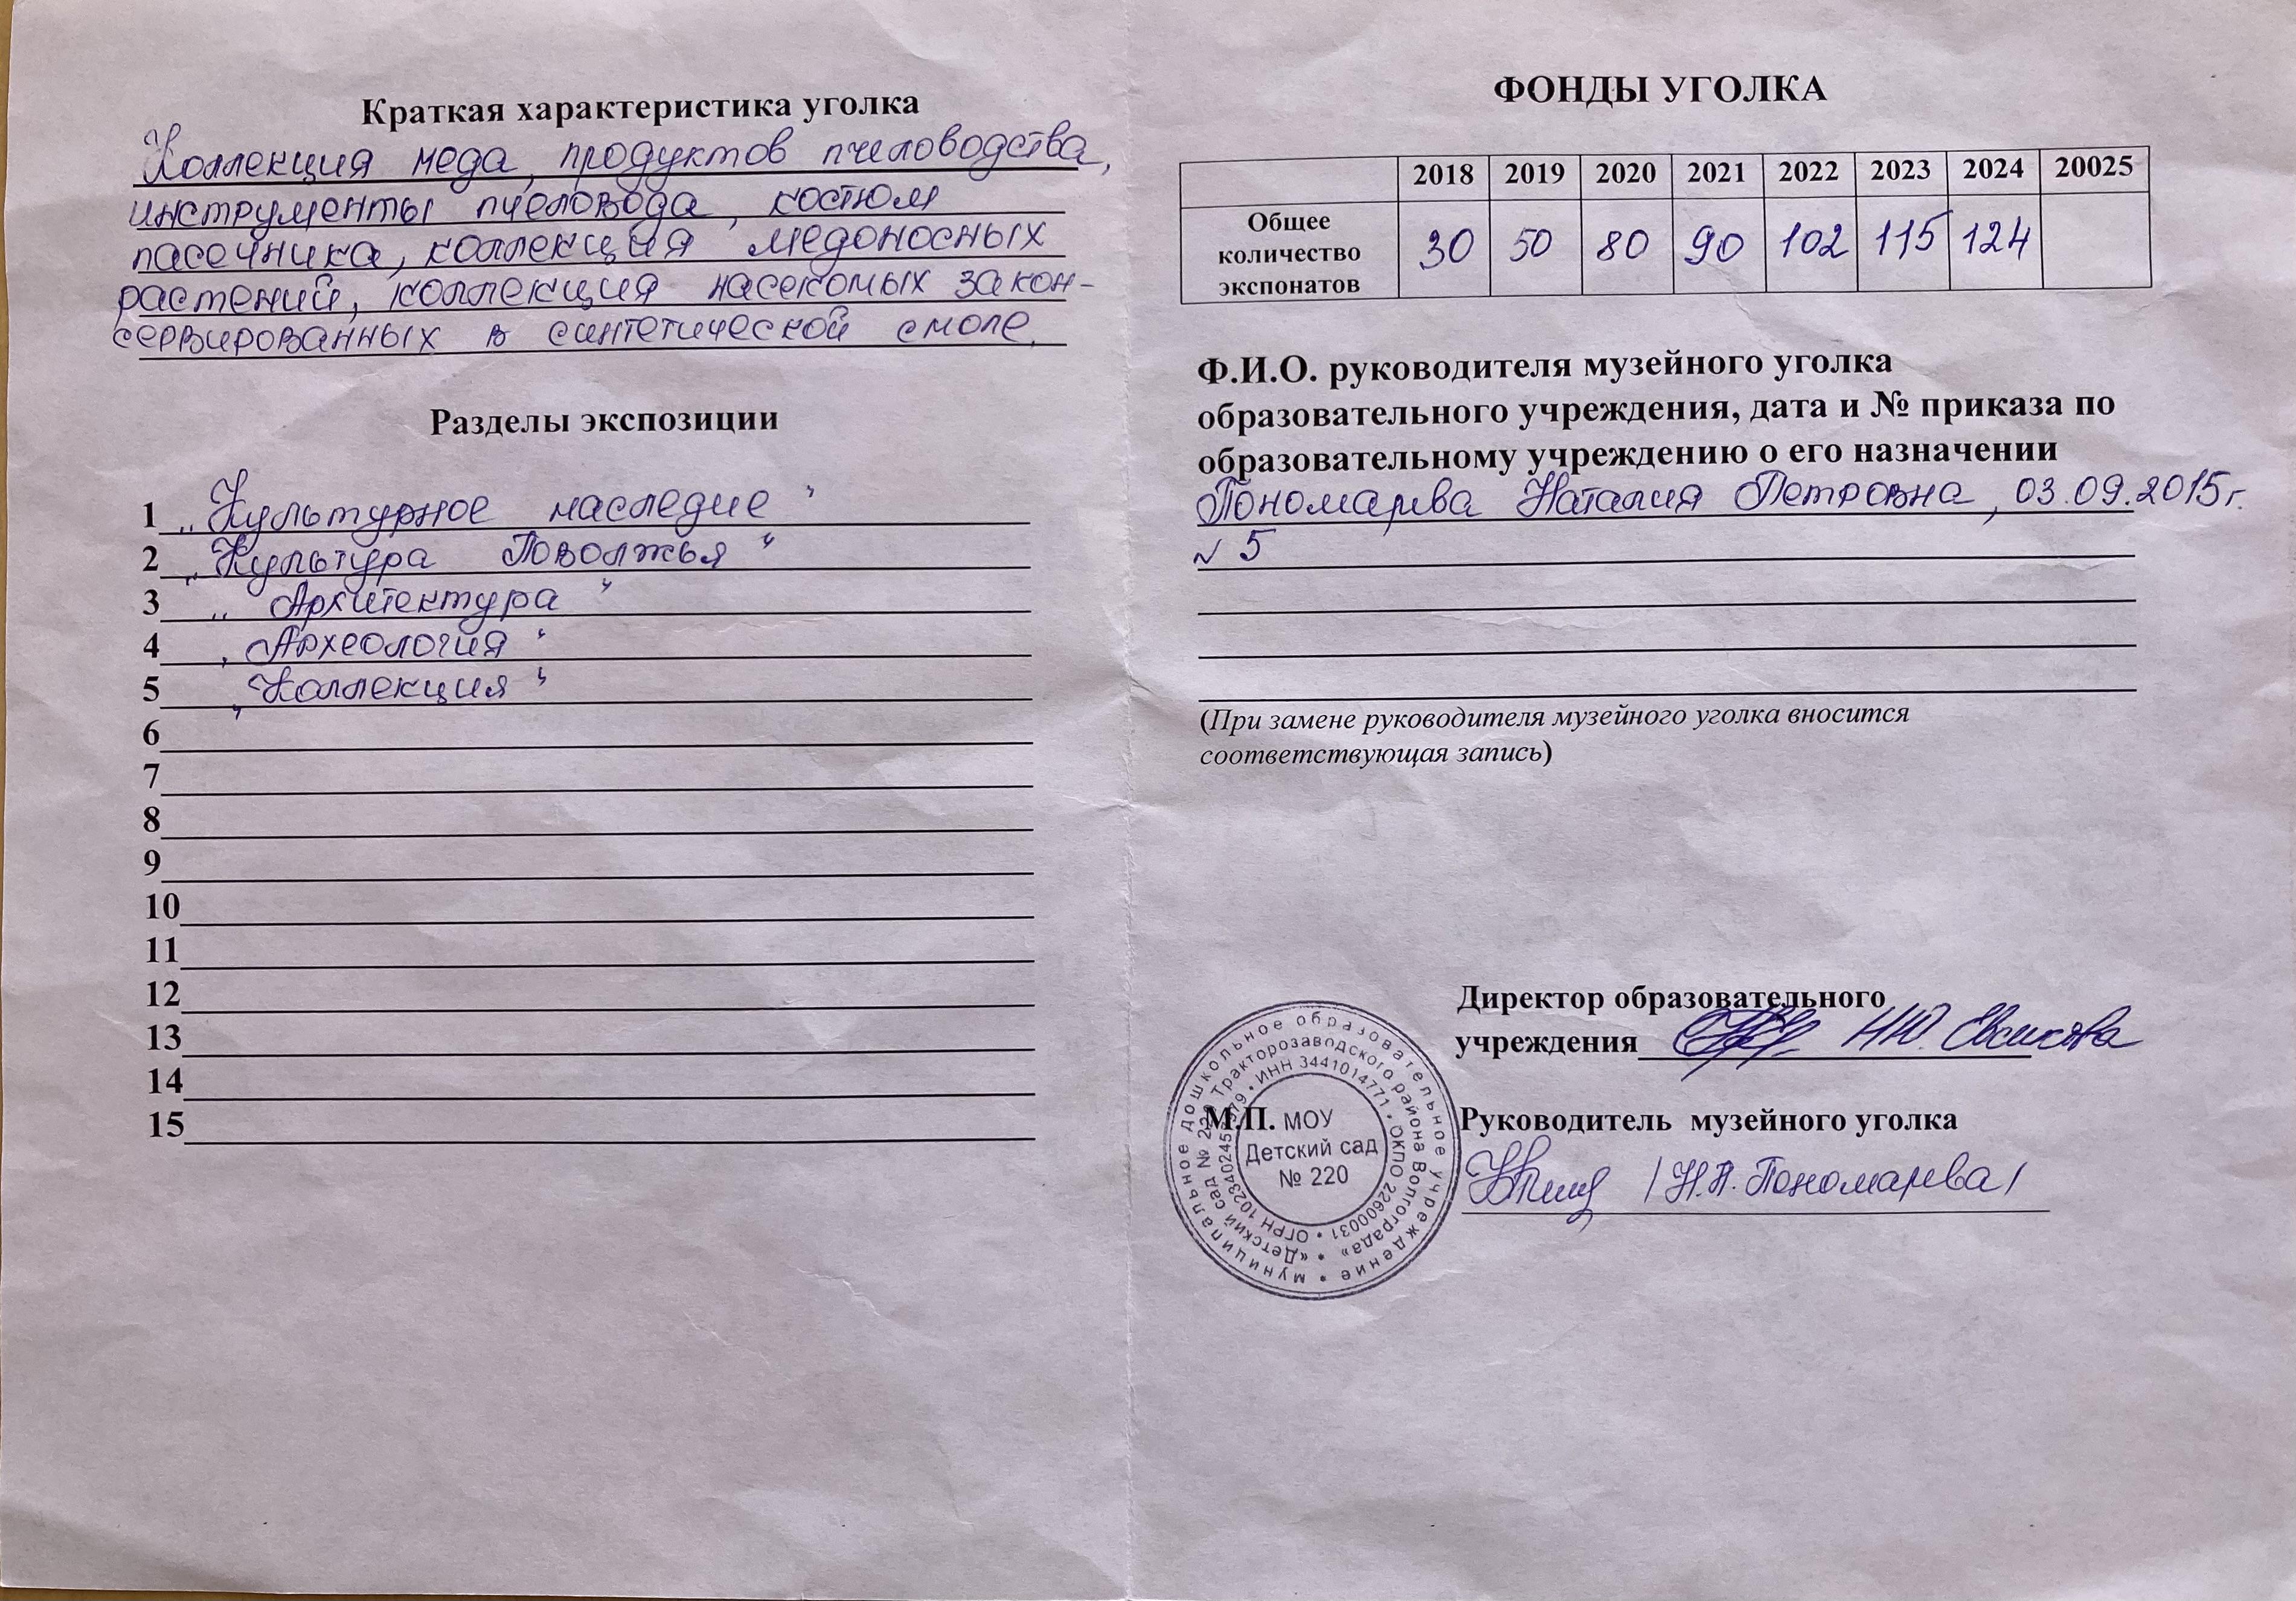 Краткая характеристика уголка
Коллекция меда, продуктов пчеловодства,
инструменты пчеловода, костюм
пасечника, коллекция медоносных
растений, коллекция насекомых закон-
сервированных в синтетической смоле.
Разделы экспозиции
1 „Культурное наследие"
2 „Культура Поволжья"
3 „Архитектура"
4 „Археология"
5 „Коллекция"
6
7
8
9
10
11
12
13
14
15
ФОНДЫ УГОЛКА
2018 2019 2020 2021 2022 2023 2024 20025
Общее количество экспонатов 30 50 80 90 102 115 124
Ф.И.О. руководителя музейного уголка
образовательного учреждения, дата и № приказа по
образовательному учреждению о его назначении
Пономарева Наталия Петровна, 03.09.2015г.
№ 5
(При замене руководителя музейного уголка вносится
соответствующая запись)
Директор образовательного
учреждения Н.Ю. Евсикова
М.П.
Руководитель музейного уголка
/Н.П. Пономарева/
муниципальное дошкольное образовательное учреждение
«Детский сад № 220 Тракторозаводского района Волгограда»
ИНН 3441014771 • ОКПО 22600031 • ОГРН
МОУ
Детский сад
№ 220